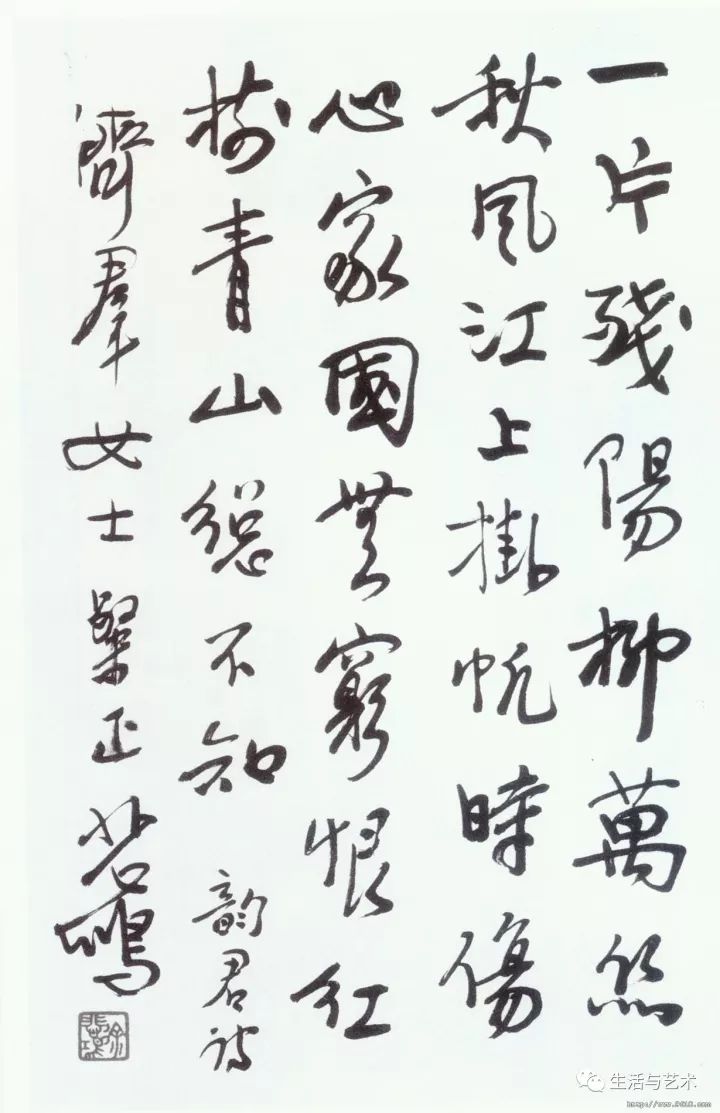 一片殘陽柳萬絲
秋風江上掛帆時傷
心家國無窮恨紅
樹青山總不知 韻君詩
濟羣女士粲正 悲鴻
徐悲鴻
生活与艺术
http://www.9610.com